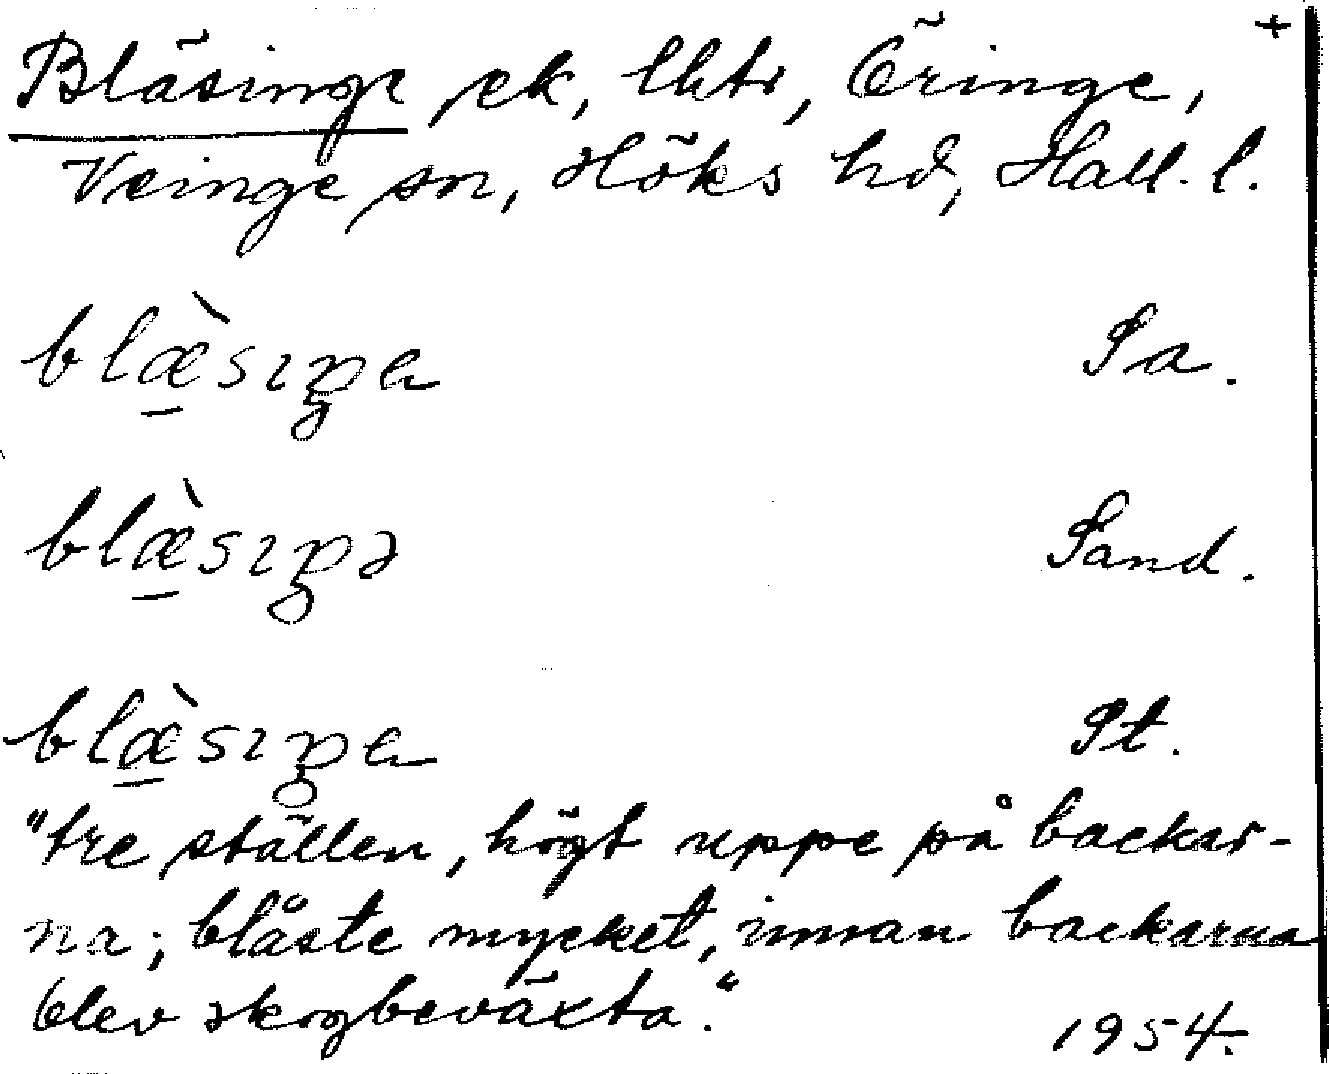 +
Bläsinge, ek, lhtr, Öringe,
Veinge sn, Höks hd, Hall. l.
blæ̀sıŋe Sa.
blæ̀sıŋə Sand.
blæ̀sıŋe St.
"tre ställen, högt uppe på backar-
na; blåste mycket, innan backarna
blev skogbeväxta."
1954.